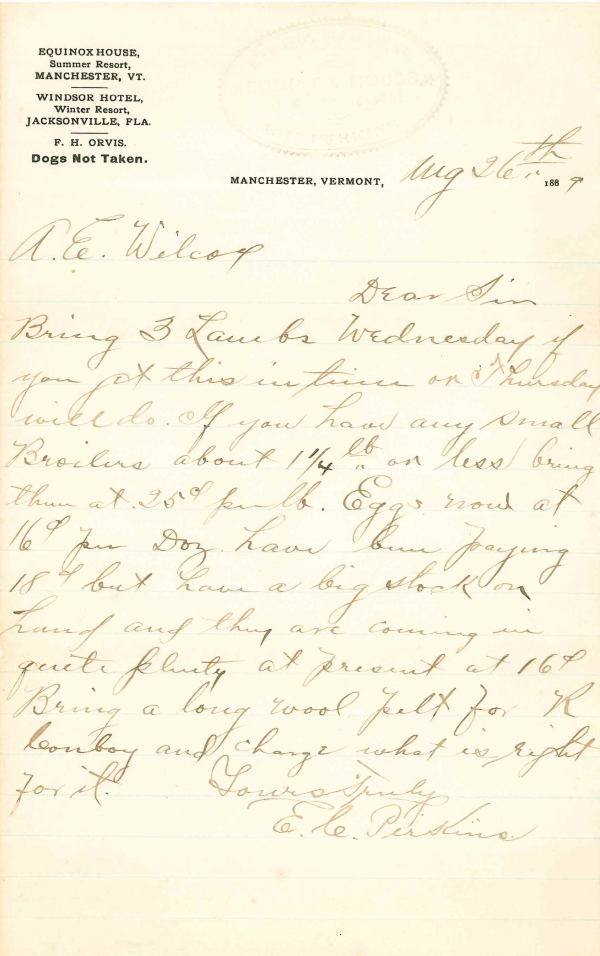 EQUINOX HOUSE,
Summer Resort,
MANCHESTER, VT.
WINDSOR HOTEL,
Winter Resort,
JACKSONVILLE, FLA.
F. H. ORVIS.
Dogs Not Taken.
MANCHESTER, VERMONT, Aug 26th 1889
A. E. Wilcox
Dear Sir
Bring 3 Lambs Wednesday if
you get this in time or Thursday
will do. If you have any small
Broilers about 1 1/4 lb or less bring
them at 25¢ per lb. Eggs now at
16¢ per Doz. have been paying
18¢ but have a big stock on
hand and they are coming in
quite plenty at present at 16¢
Bring a long wool pelt for K
Conboy and charge what is right
for it. Yours Truly
E. C. Perkins